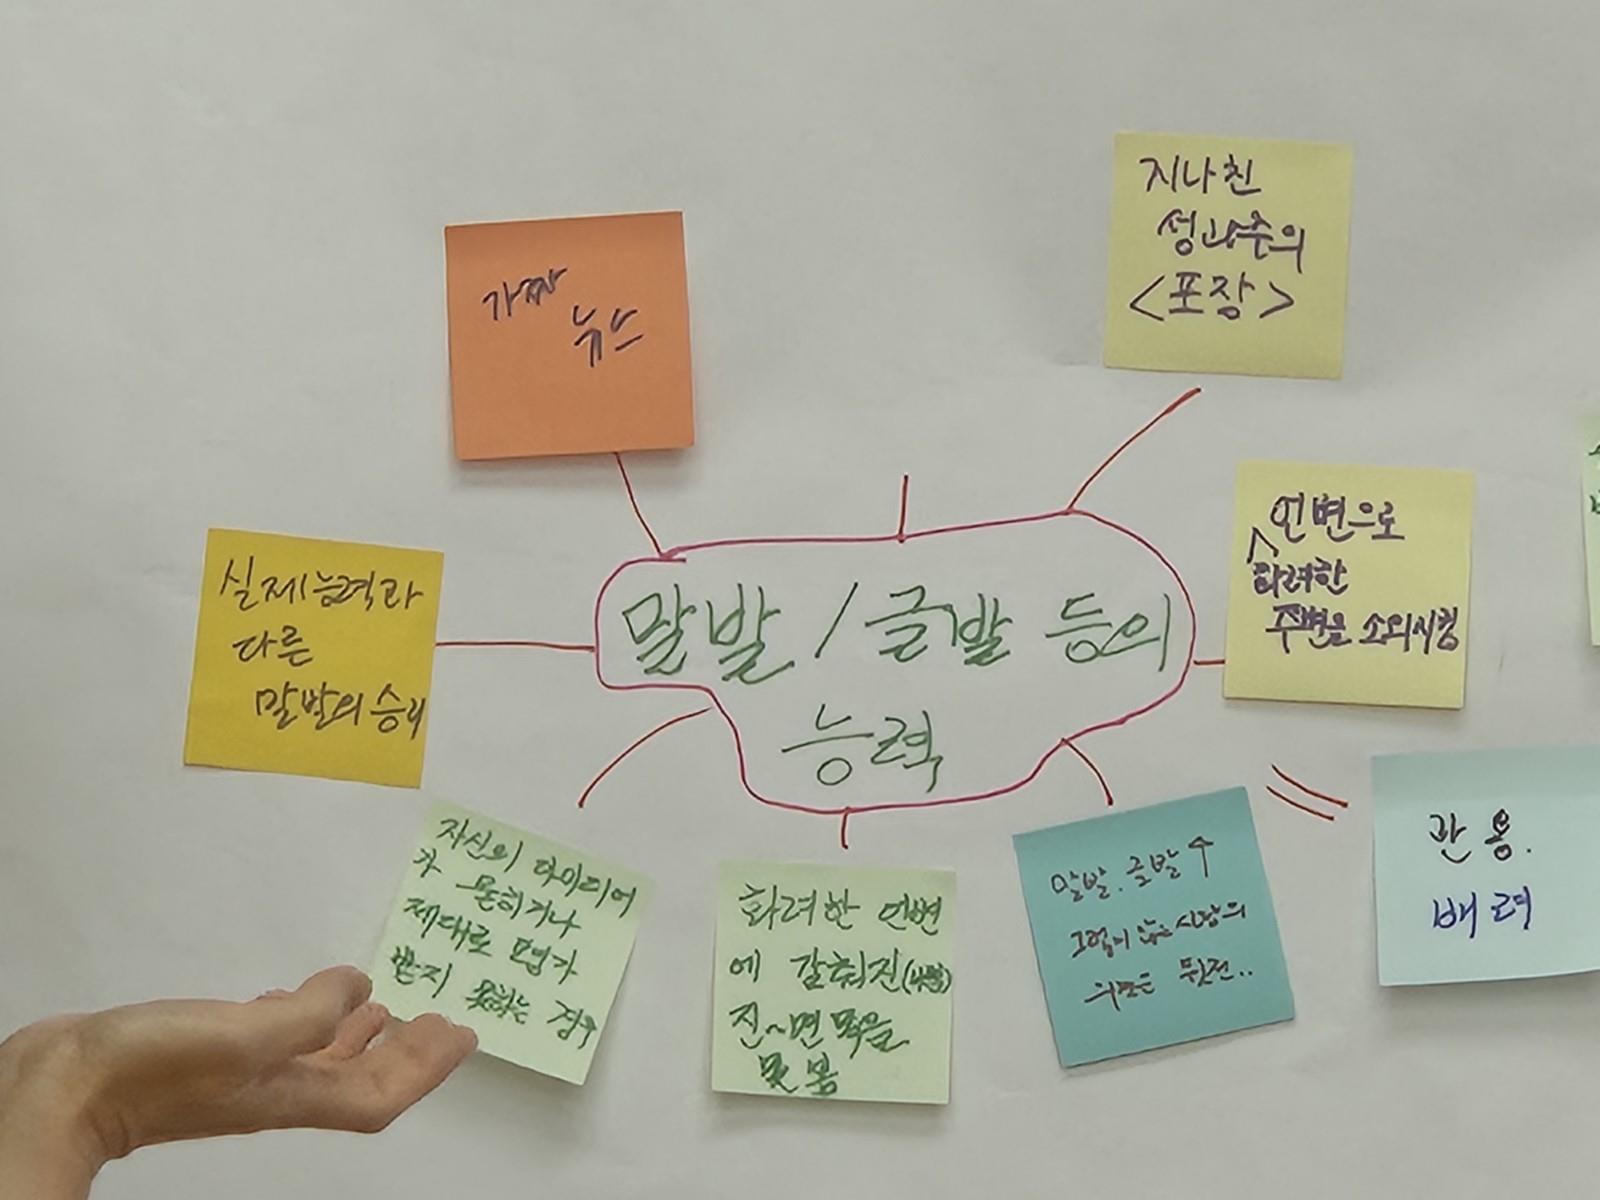 지나친
성과주의
<포장>
가짜
뉴스
언변으로
화려한
주변을 소외시킴
실제능력과
다른
말발의 승리
말발 / 글발 등의
능력
관용.
배려
자신의 아이디어
가 묻히거나
제대로 평가
받지 못하는 경우
화려한 언변
에 갈춰진
진~면목을
못 봄
말발.글발↑
그렇지 않은 사람의
의견은 뒷전..